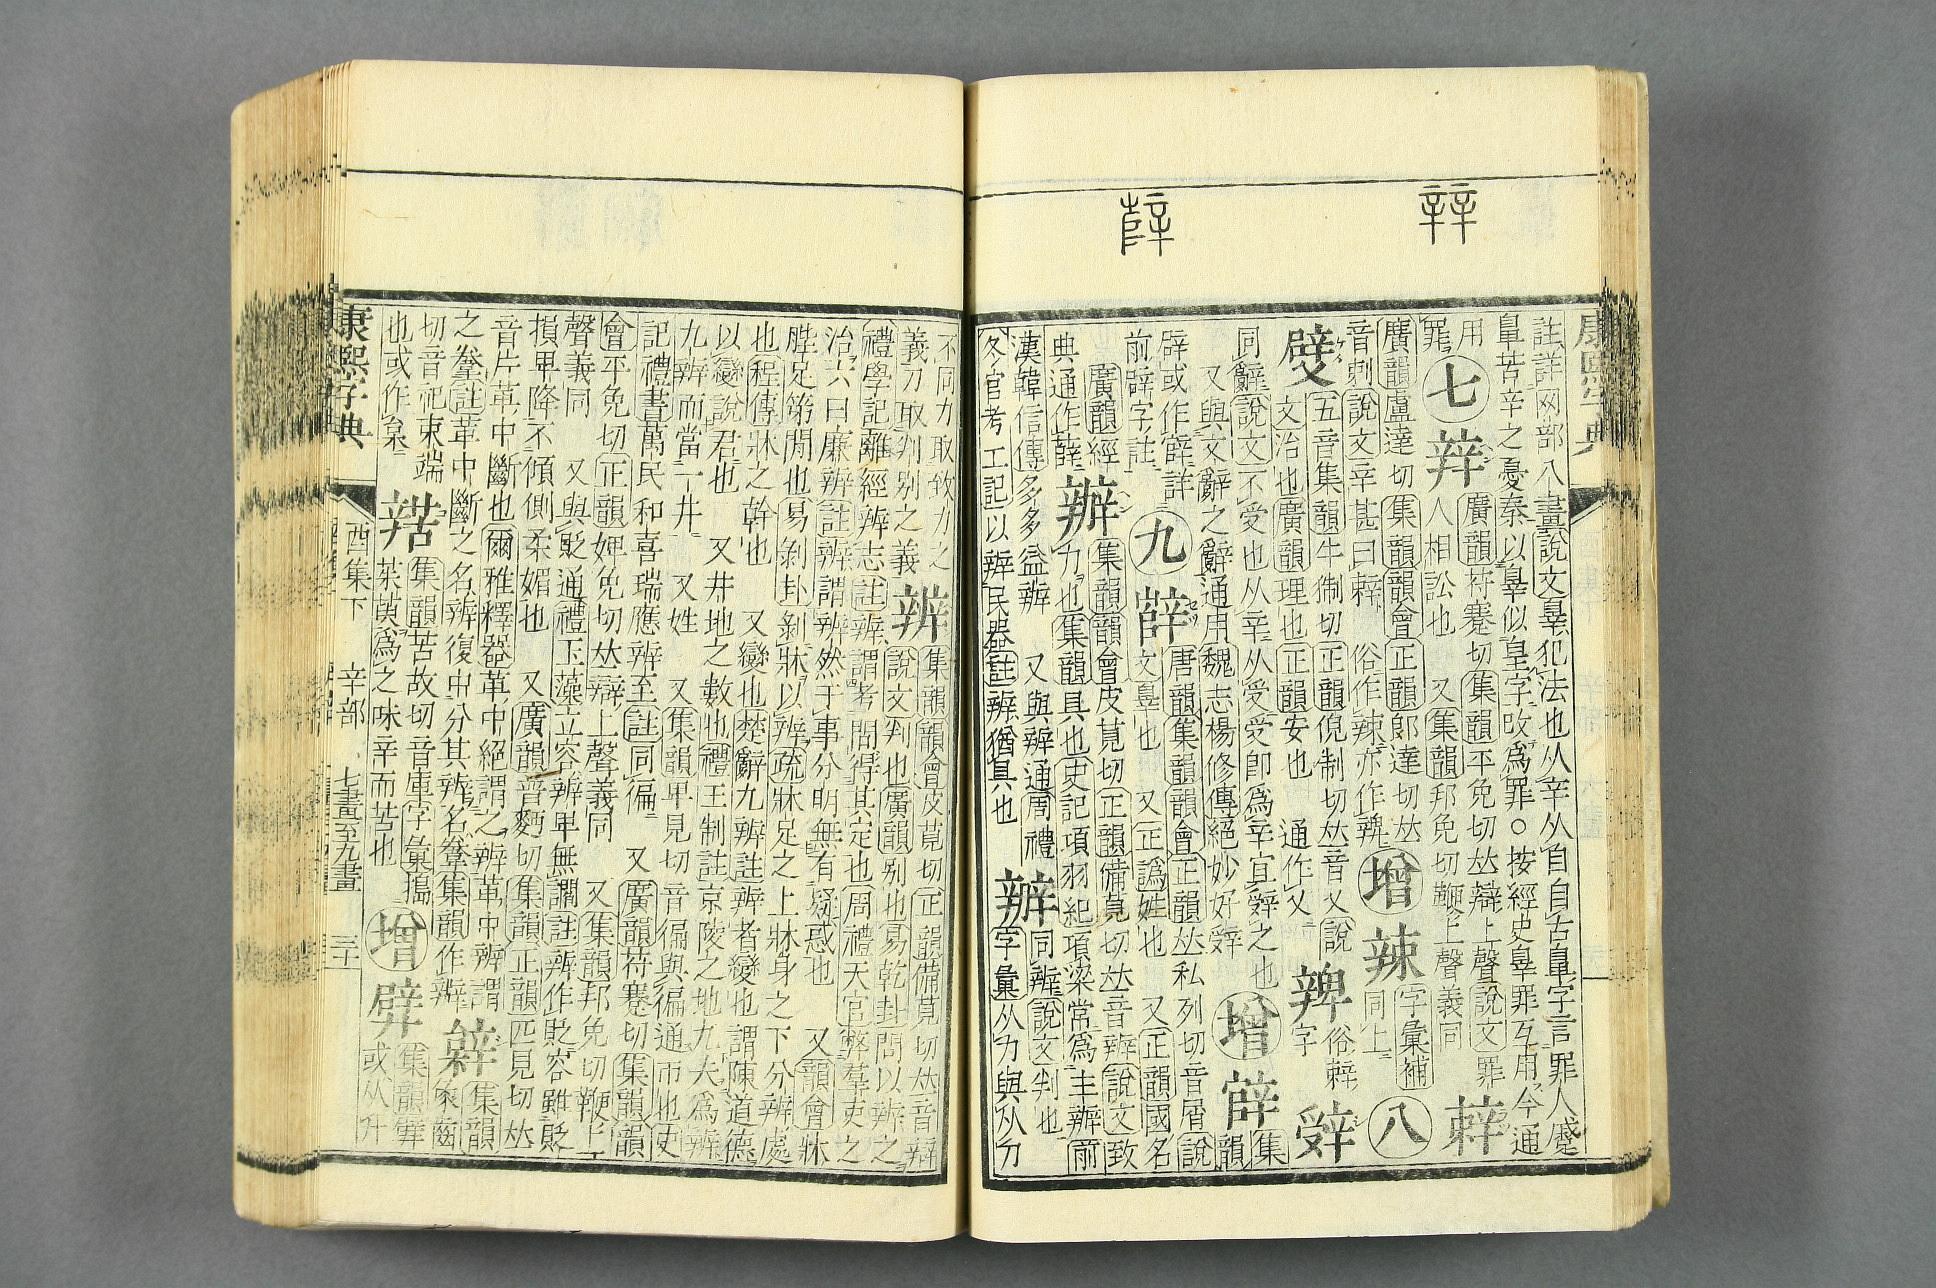 康熙字典
註詳网部八畫說文辠犯法也从辛从自自古辠字言罪人蹙
辠苦辛之憂秦以辠似皇字改爲罪○按經史辠罪互用今通
用
罪
七
辡
廣韻符蹇切集韻平免切𠀤辯上聲說文罪
人相訟也 又集韻邦免切鞭上聲義同
廣韻盧達切集韻韻會正韻郎達切𠀤
音剌說文辛甚曰辢 俗作辣亦作
增
辣
字彙補
同上
八
五音集韻牛制切正韻倪制切𠀤音乂說
文治也廣韻理也正韻安也 通作乂
字
俗辢
辤
同辭說文不受也从辛从受受卽爲辛宜辤之也
又與文辭之辭通用魏志楊修傳絕妙好辤
增
辥
集韻
辟或作辥詳
前辟字註
九
辥
唐韻集韻韻會正韻𠀤私列切音屑說
文辠也 又正譌姓也 又正韻國名
典通作薛
廣韻經
辦
集韻韻會皮莧切正韻備莧切𠀤音辨說文致
力也集韻具也史記項羽紀項梁常爲主辦前
漢韓信傳多多益辦 又與辨通周禮
冬官考工記以辨民器註辨猶具也
辧
同辨說文判也
字彙从力與从刀
不同力取致力之
義刀取判别之義
辨
集韻韻會皮莧切正韻備莧切𠀤音辯
說文判也廣韻别也易乾卦問以辨之
禮學記離經辨志註辨謂考問得其定也周禮天官弊羣吏之
治六曰廉辨註辨謂辨然于事分明無有疑惑也 又韻會牀
脞足第閒也易剝卦剝牀以辨疏牀足之上牀身之下分辨處
也程傳牀之幹也 又變也楚辭九辨註辨者變也謂陳道德
以變說君也 又井地之數也禮王制註京陵之地九夫爲辨
九辨而當一井 又姓 又集韻畀見切音徧與徧通帀也史
記禮書萬民和喜瑞應辨至註同徧 又廣韻符蹇切集韻韻
會平免切正韻婢免切𠀤辯上聲義同 又集韻邦免切鞭上
聲義同 又與貶通禮玉藻立容辨畀無讇註辨作貶容雖貶
損畀降不傾側柔媚也 又廣韻普麪切集韻正韻匹見切𠀤
音片革中斷也爾雅釋器革中絕謂之辨革中辨謂
之韏註革中斷之名辨復中分其辨名韏集韻作辦
切音祀束端
也或作枲
集韻
辝
集韻苦故切音庫字彙搗
茱萸爲之味辛而苦也
增
集韻
或从升
康熙字典
酉集下 辛部 七畫至九畫